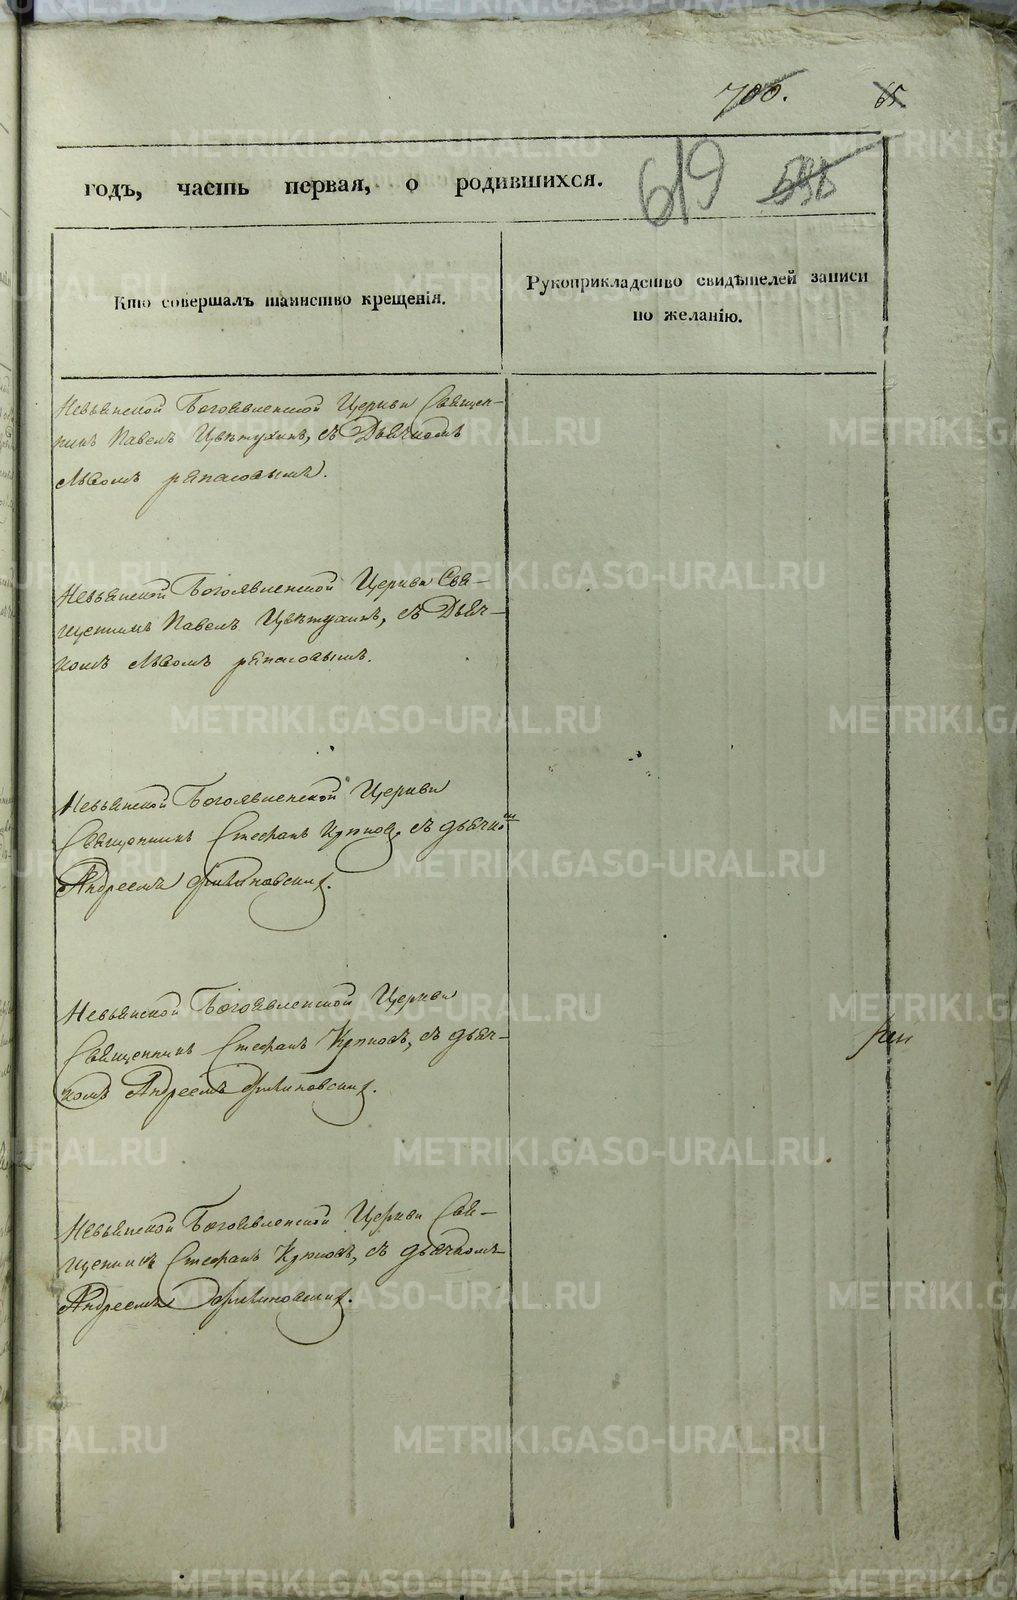 700.
65.
годъ, часть первая, о родившихся.
619
Кто совершалъ таинство крещенія.
Рукоприкладство свидѣтелей записи
по желанію.
Невьянской Богоявленской Церкви Священ-
никъ Павелъ Цвѣтухинъ, съ Дьячкомъ
Львомъ
Невьянской Богоявленской Церкви Свя-
щенникъ Павелъ Цвѣтухинъ, съ Дьяч-
комъ Львомъ
Невьянской Богоявленской Церкви
Священникъ Стефанъ съ дьячкомъ
Андреемъ
Невьянской Богоявленской Церкви
Священникъ Стефанъ съ дьяч-
комъ Андреемъ
Невьянской Богоявленской Церкви Свя-
щенникъ Стефанъ съ дьячкомъ
Андреемъ
METRIKI.GASO-URAL.RU